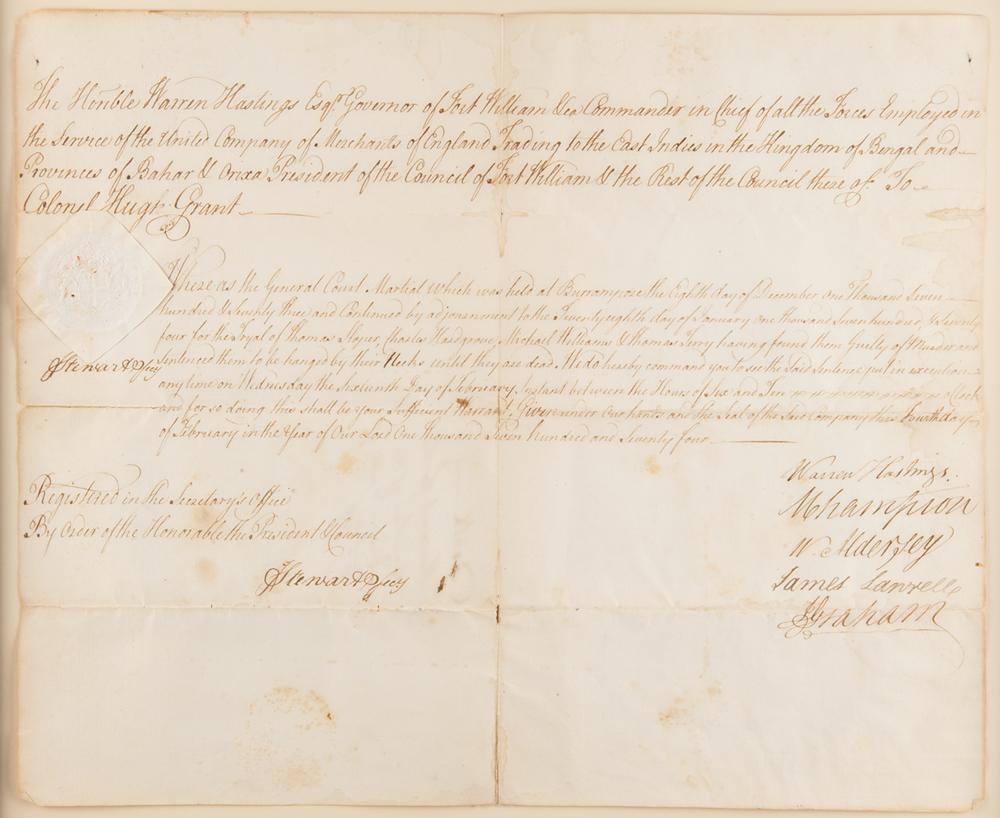 The Honble Warren Hastings Esqr. Governor of Fort William &ca Commander in Chief of all the Forces Employed in
the Service of the United Company of Merchants of England Trading to the East Indies in the Kingdom of Bengal and
Provinces of Bahar & Orixa President of the Council of Fort William & the Rest of the Council there of. To
Colonel Hugh Grant
Where as the General Court Martial which was held at Burrampore the Eighth day of December One Thousand Seven
hundred & Seventy three and Continued by adjournment to the Twenty eighth day of January one thousand Seven hundred & Seventy
four for the Tryal of Thomas Charles Hardgrove, Michael Williams & Thomas Terry having found them Guilty of Murder and
Sentenced them to be hanged by their Necks until they are dead. We do hereby command you to see the Said Sentence put in execution
any time on Wednesday the Sixteenth Day of February Instant between the Hours of Six and Ten o'Clock
and for so doing this shall be your Sufficient Warrant. Given under Our hands and the Seal of the Said Company this Fourth day
of February in the Year of Our Lord One thousand Seven hundred and Seventy four
JStewart Secy
Registered in the Secretary's Office
By Order of the Honorable the President & Council
JStewart Secy
Warren Hastings.
Champion
W. Aldersey
James Lawrell
JGraham